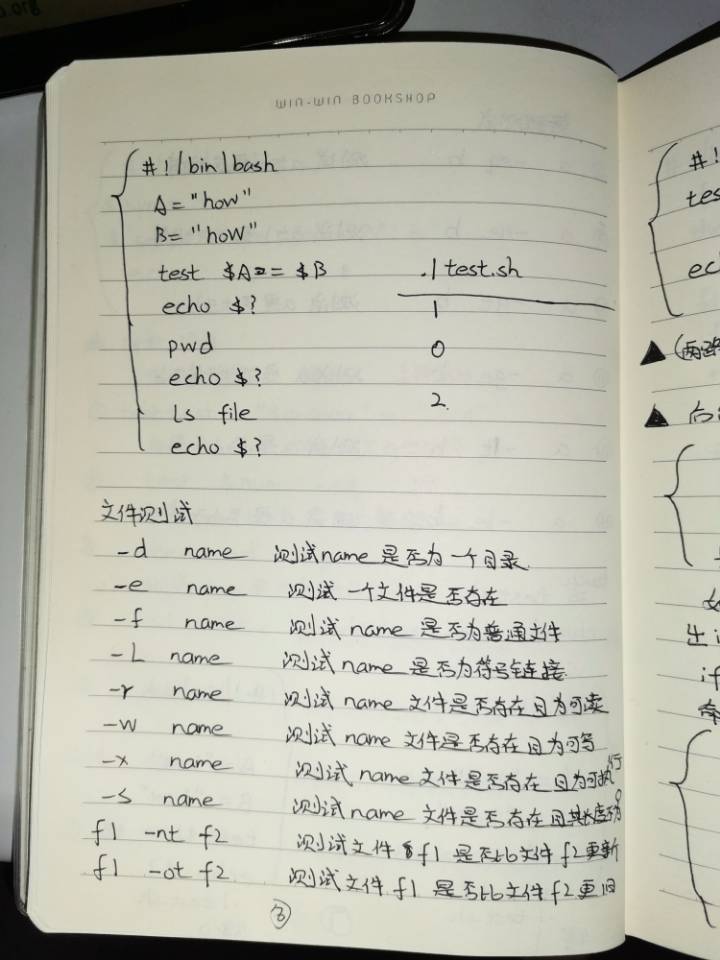 p.org
WIN-WIN BOOKSHOP
#!/bin/bash
A="how"
B="hoW"
test $A == $B
echo $?
pwd
echo $?
ls file
echo $?
./test.sh
1
0
2.
文件测试
-d name 测试name是否为一个目录.
-e name 测试一个文件是否存在
-f name 测试name是否为普通文件
-L name 测试name是否为符号链接
-r name 测试name文件是否存在且为可读
-w name 测试name文件是否存在且为可写
-x name 测试name文件是否存在且为可执行
-s name 测试name文件是否存在且其长度不为0
f1 -nt f2 测试文件f1是否比文件f2更新
f1 -ot f2 测试文件f1是否比文件f2更旧
3
#!
tes
ec
▲(两
▲向
出
if